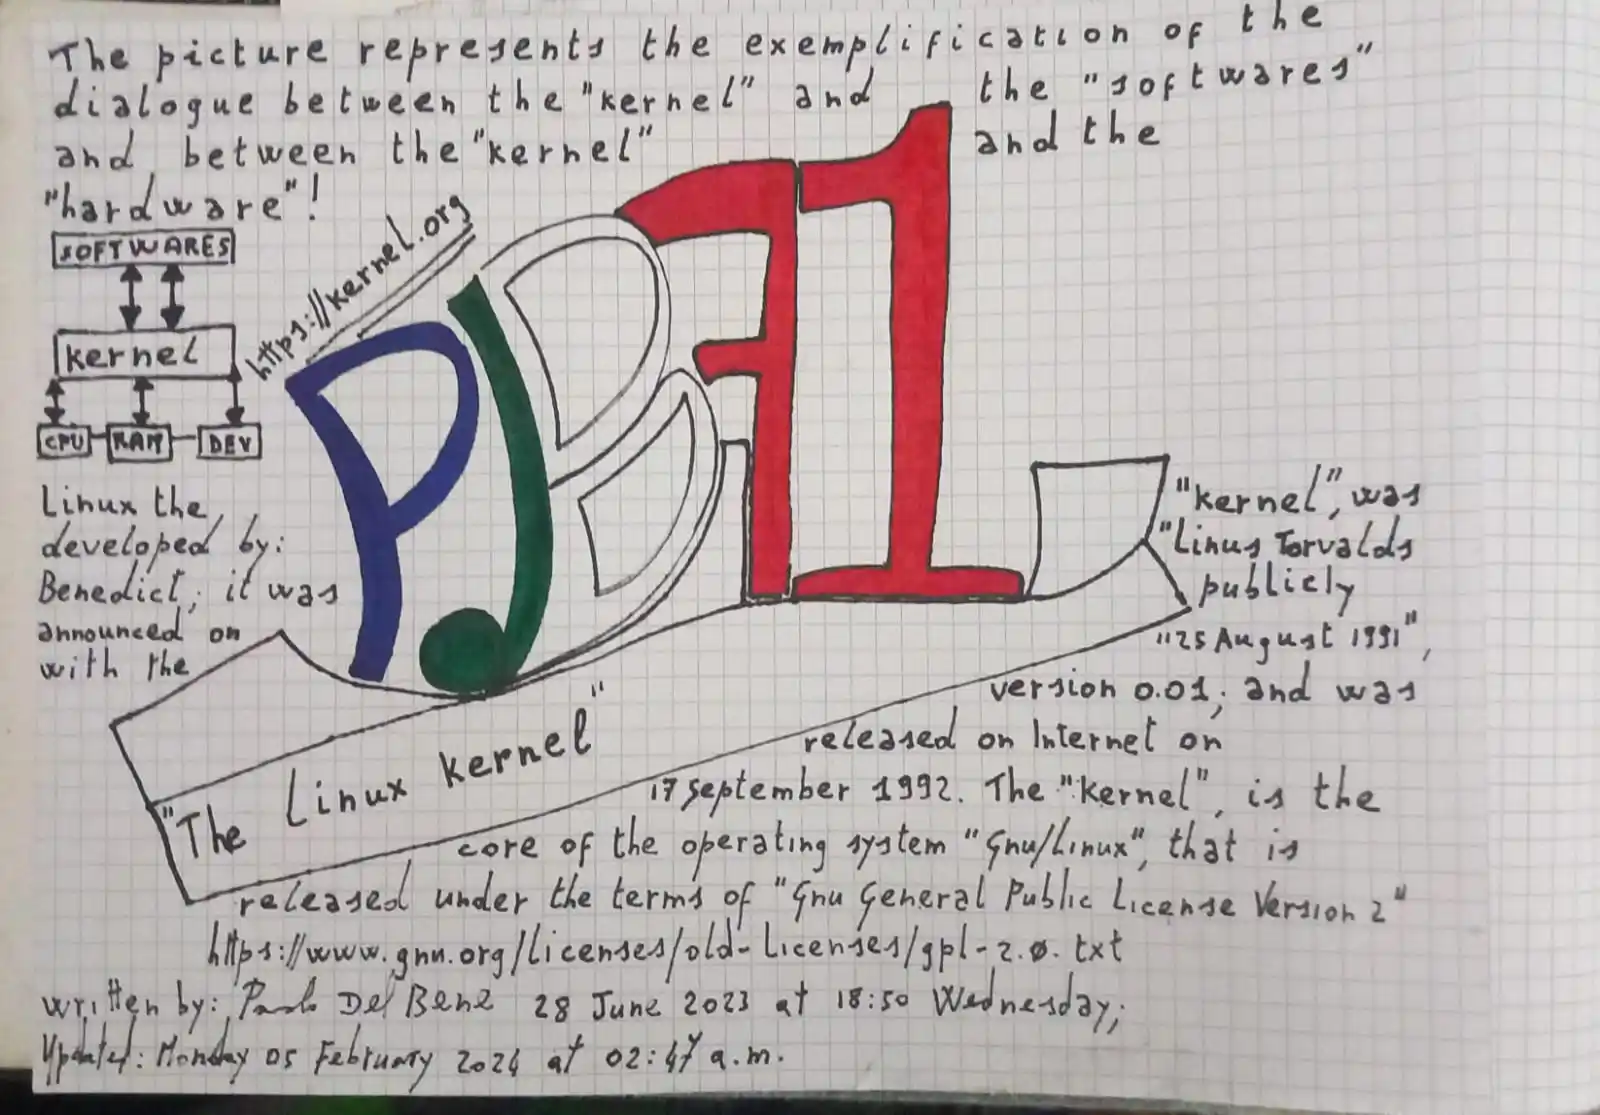 The picture represents the exemplification of the
dialogue between the "kernel" and the "softwares"
and between the "kernel" and the
"hardware"!
https://kernel.org
SOFTWARES
kernel
CPU RAM DEV
PJB71
Linux the "kernel", was
developed by: "Linus Torvalds
Benedict; it was publicly
announced on "25 August 1991",
with the version 0.01; and was
released on Internet on
"The Linux kernel"
17 September 1992. The "kernel", is the
core of the operating system "Gnu/Linux", that is
released under the terms of "Gnu General Public License Version 2"
https://www.gnu.org/licenses/old-licenses/gpl-2.0.txt
written by: Paolo Del Bene 28 June 2023 at 18:50 Wednesday;
Updated: Monday 05 February 2024 at 02:47 a.m.